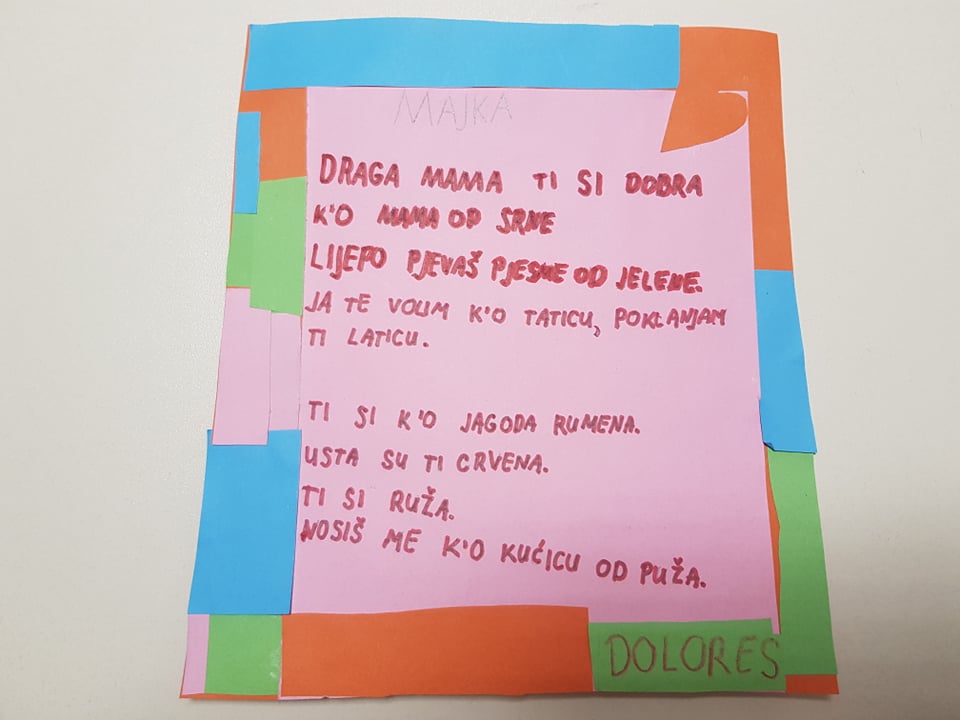 MAJKA
DRAGA MAMA TI SI DOBRA
K'O MAMA OD SRNE
LIJEPO PJEVAŠ PJESME OD JELENE.
JA TE VOLIM K'O TATICU, POKLANJAM
TI LATICU.
TI SI K'O JAGODA RUMENA.
USTA SU TI CRVENA.
TI SI RUŽA.
NOSIŠ ME K'O KUĆICU OD PUŽA.
DOLORES